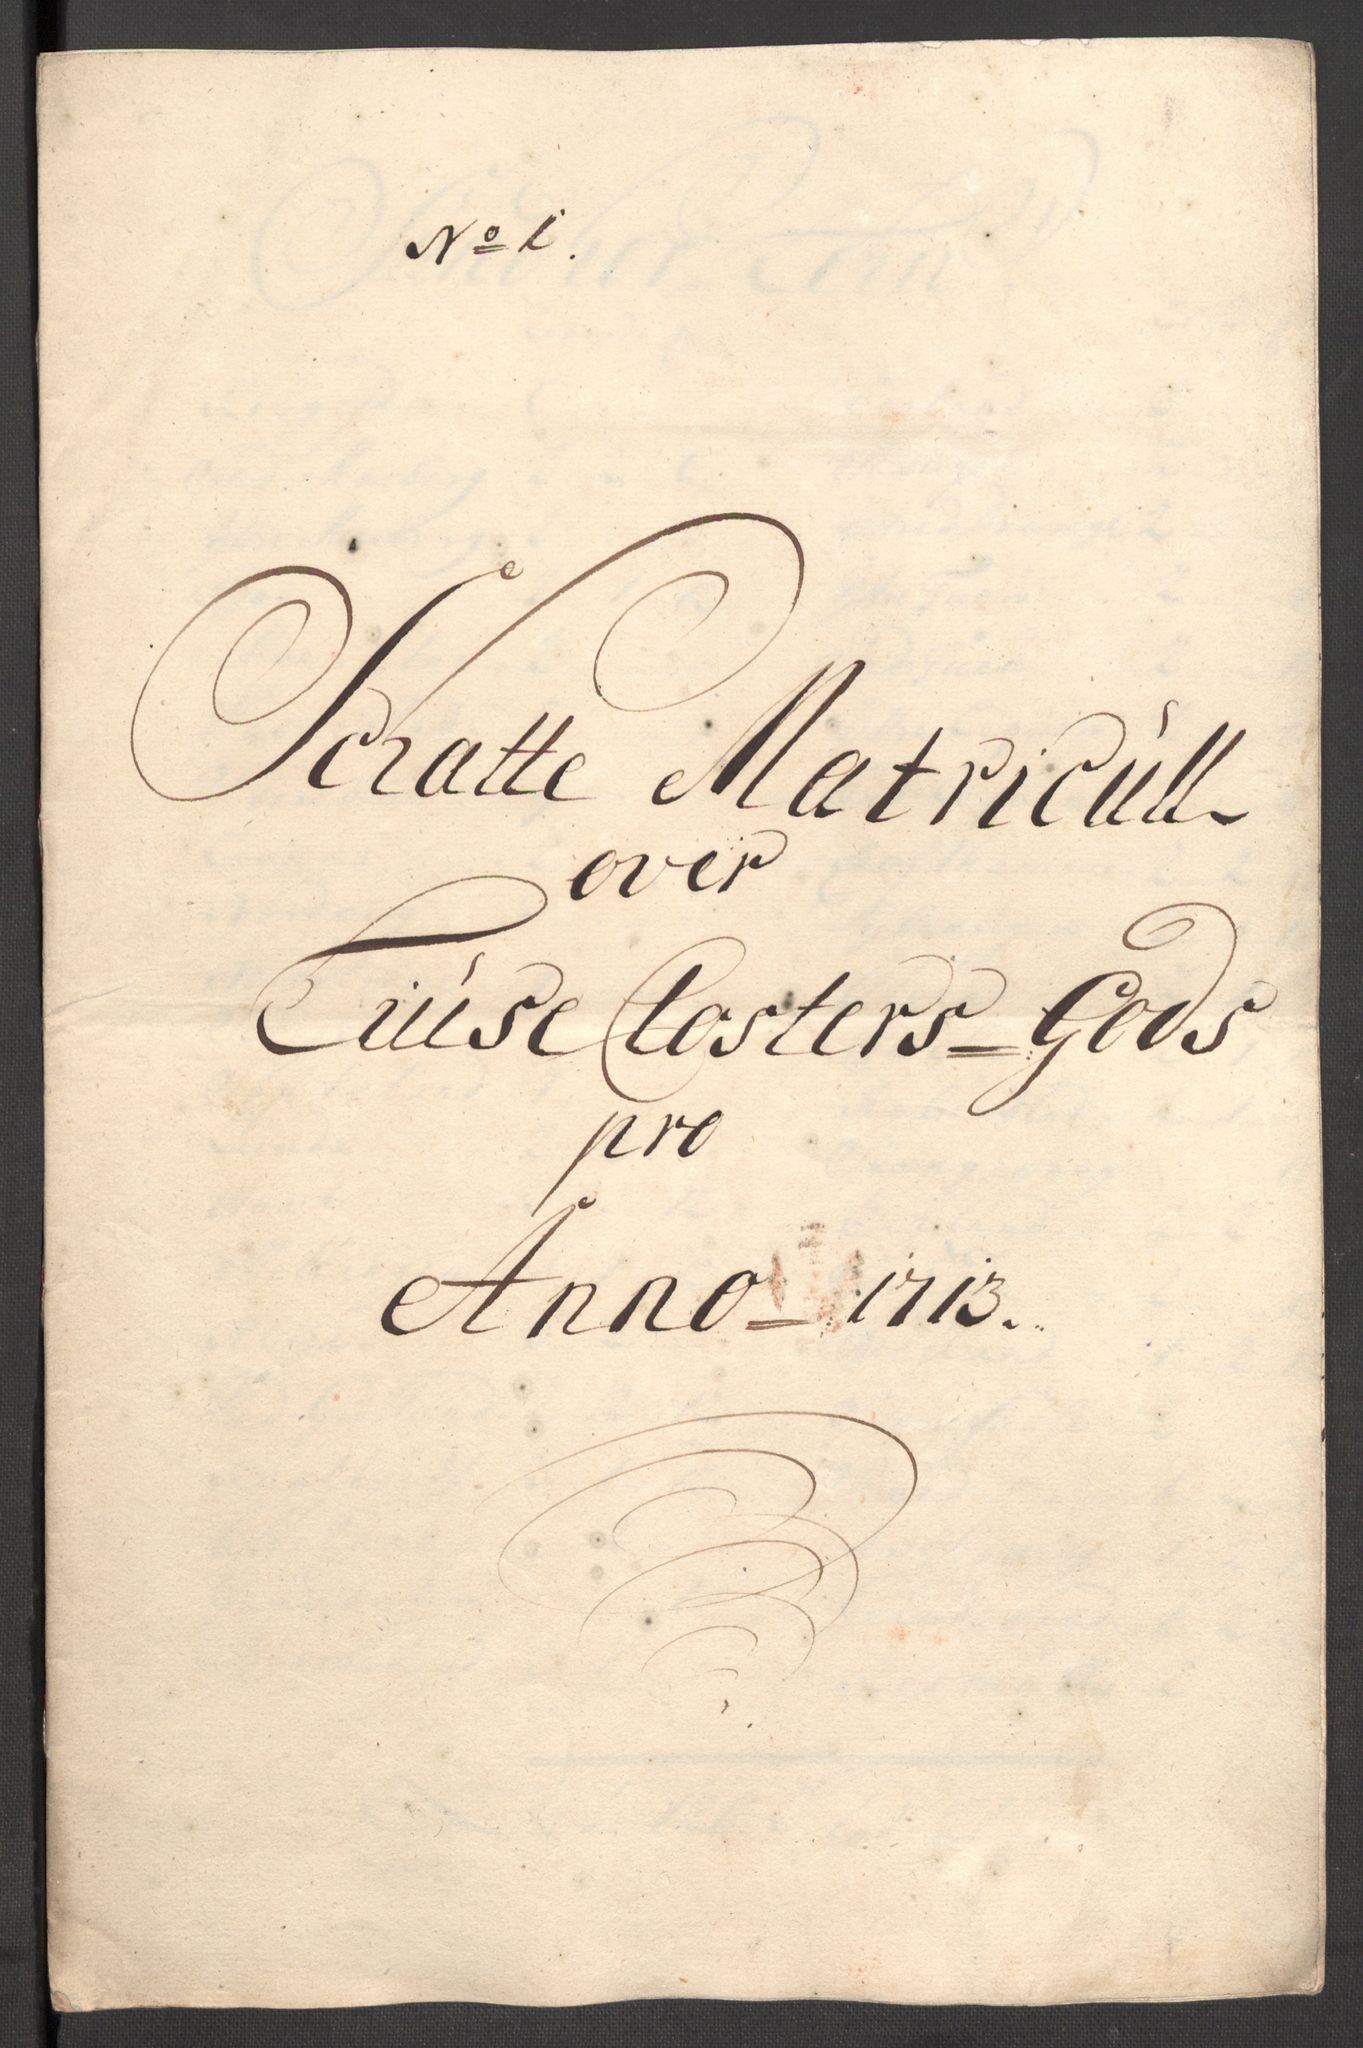 No 1.
Schatte Matricúll
over
Tiúse Closters=Gods
pro
Anno=1713.